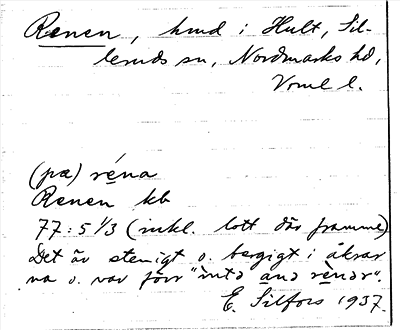 Renen, hmd i Hult, Sil-
leruds sn, Nordmarks hd,
Vrml l.
(pæ) réna
Renen kb
77:5 1/3 (inkl. lott där framme)
Det är stenigt o. bergigt i åkrar
na o. var förr "inta ana rènar".
E. Silfors 1937.